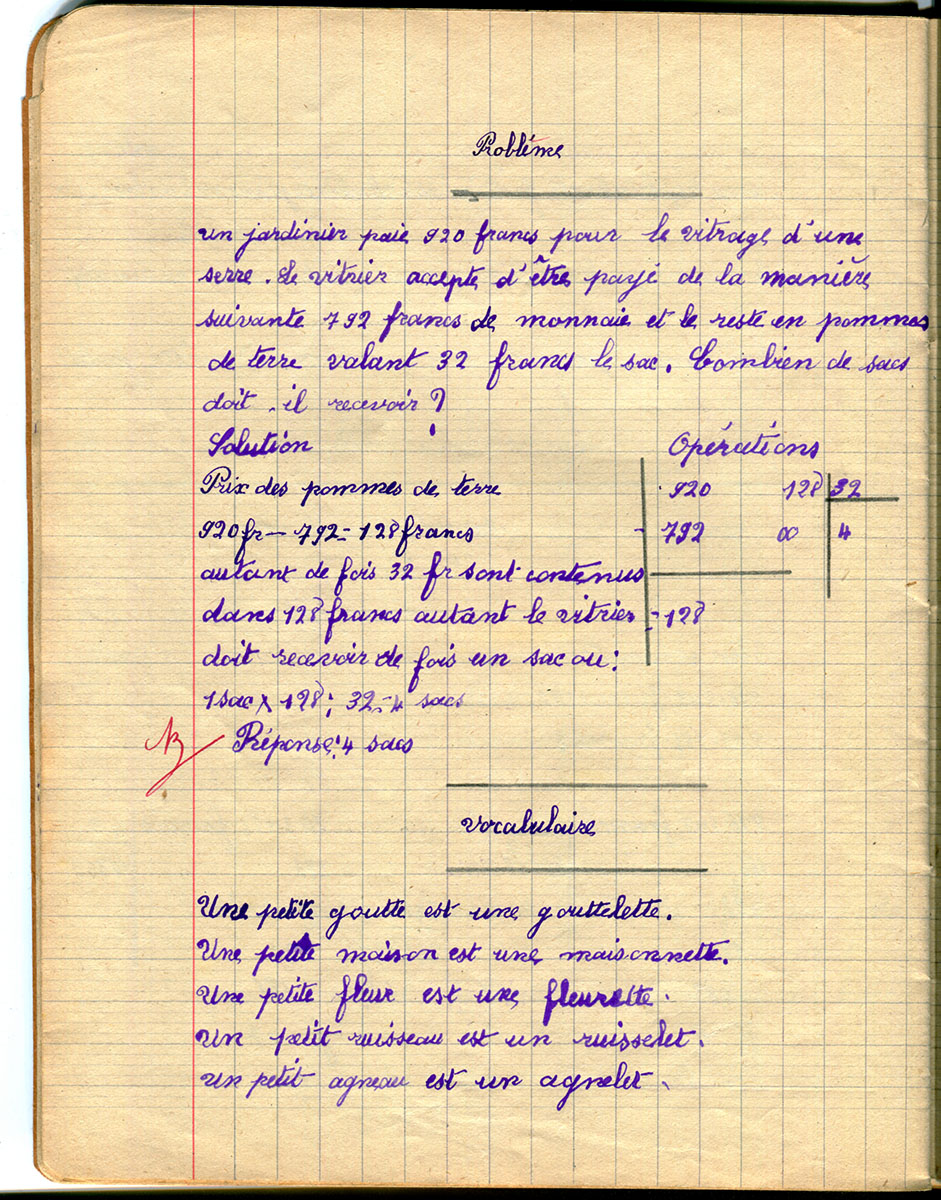 Problème
un jardinier paie 920 francs pour le vitrage d'une
serre. Le vitrier accepte d'être payé de la manière
suivante 792 francs de monnaie et le reste en pommes
de terre valant 32 francs le sac. Combien de sacs
doit-il recevoir ?
Solution
Opérations
Prix des pommes de terre
920 128 32
920 fr - 792 = 128 francs
- 792 00 4
autant de fois 32 fr sont contenus
dans 128 francs autant le vitrier
= 128
doit recevoir de fois un sac ou :
1 sac x 128 : 32 = 4 sacs
Réponse : 4 sacs
vocabulaire
Une petite goutte est une gouttelette.
Une petite maison est une maisonnette.
Une petite fleur est une fleurette.
Un petit ruisseau est un ruisselet.
Un petit agneau est un agnelet.